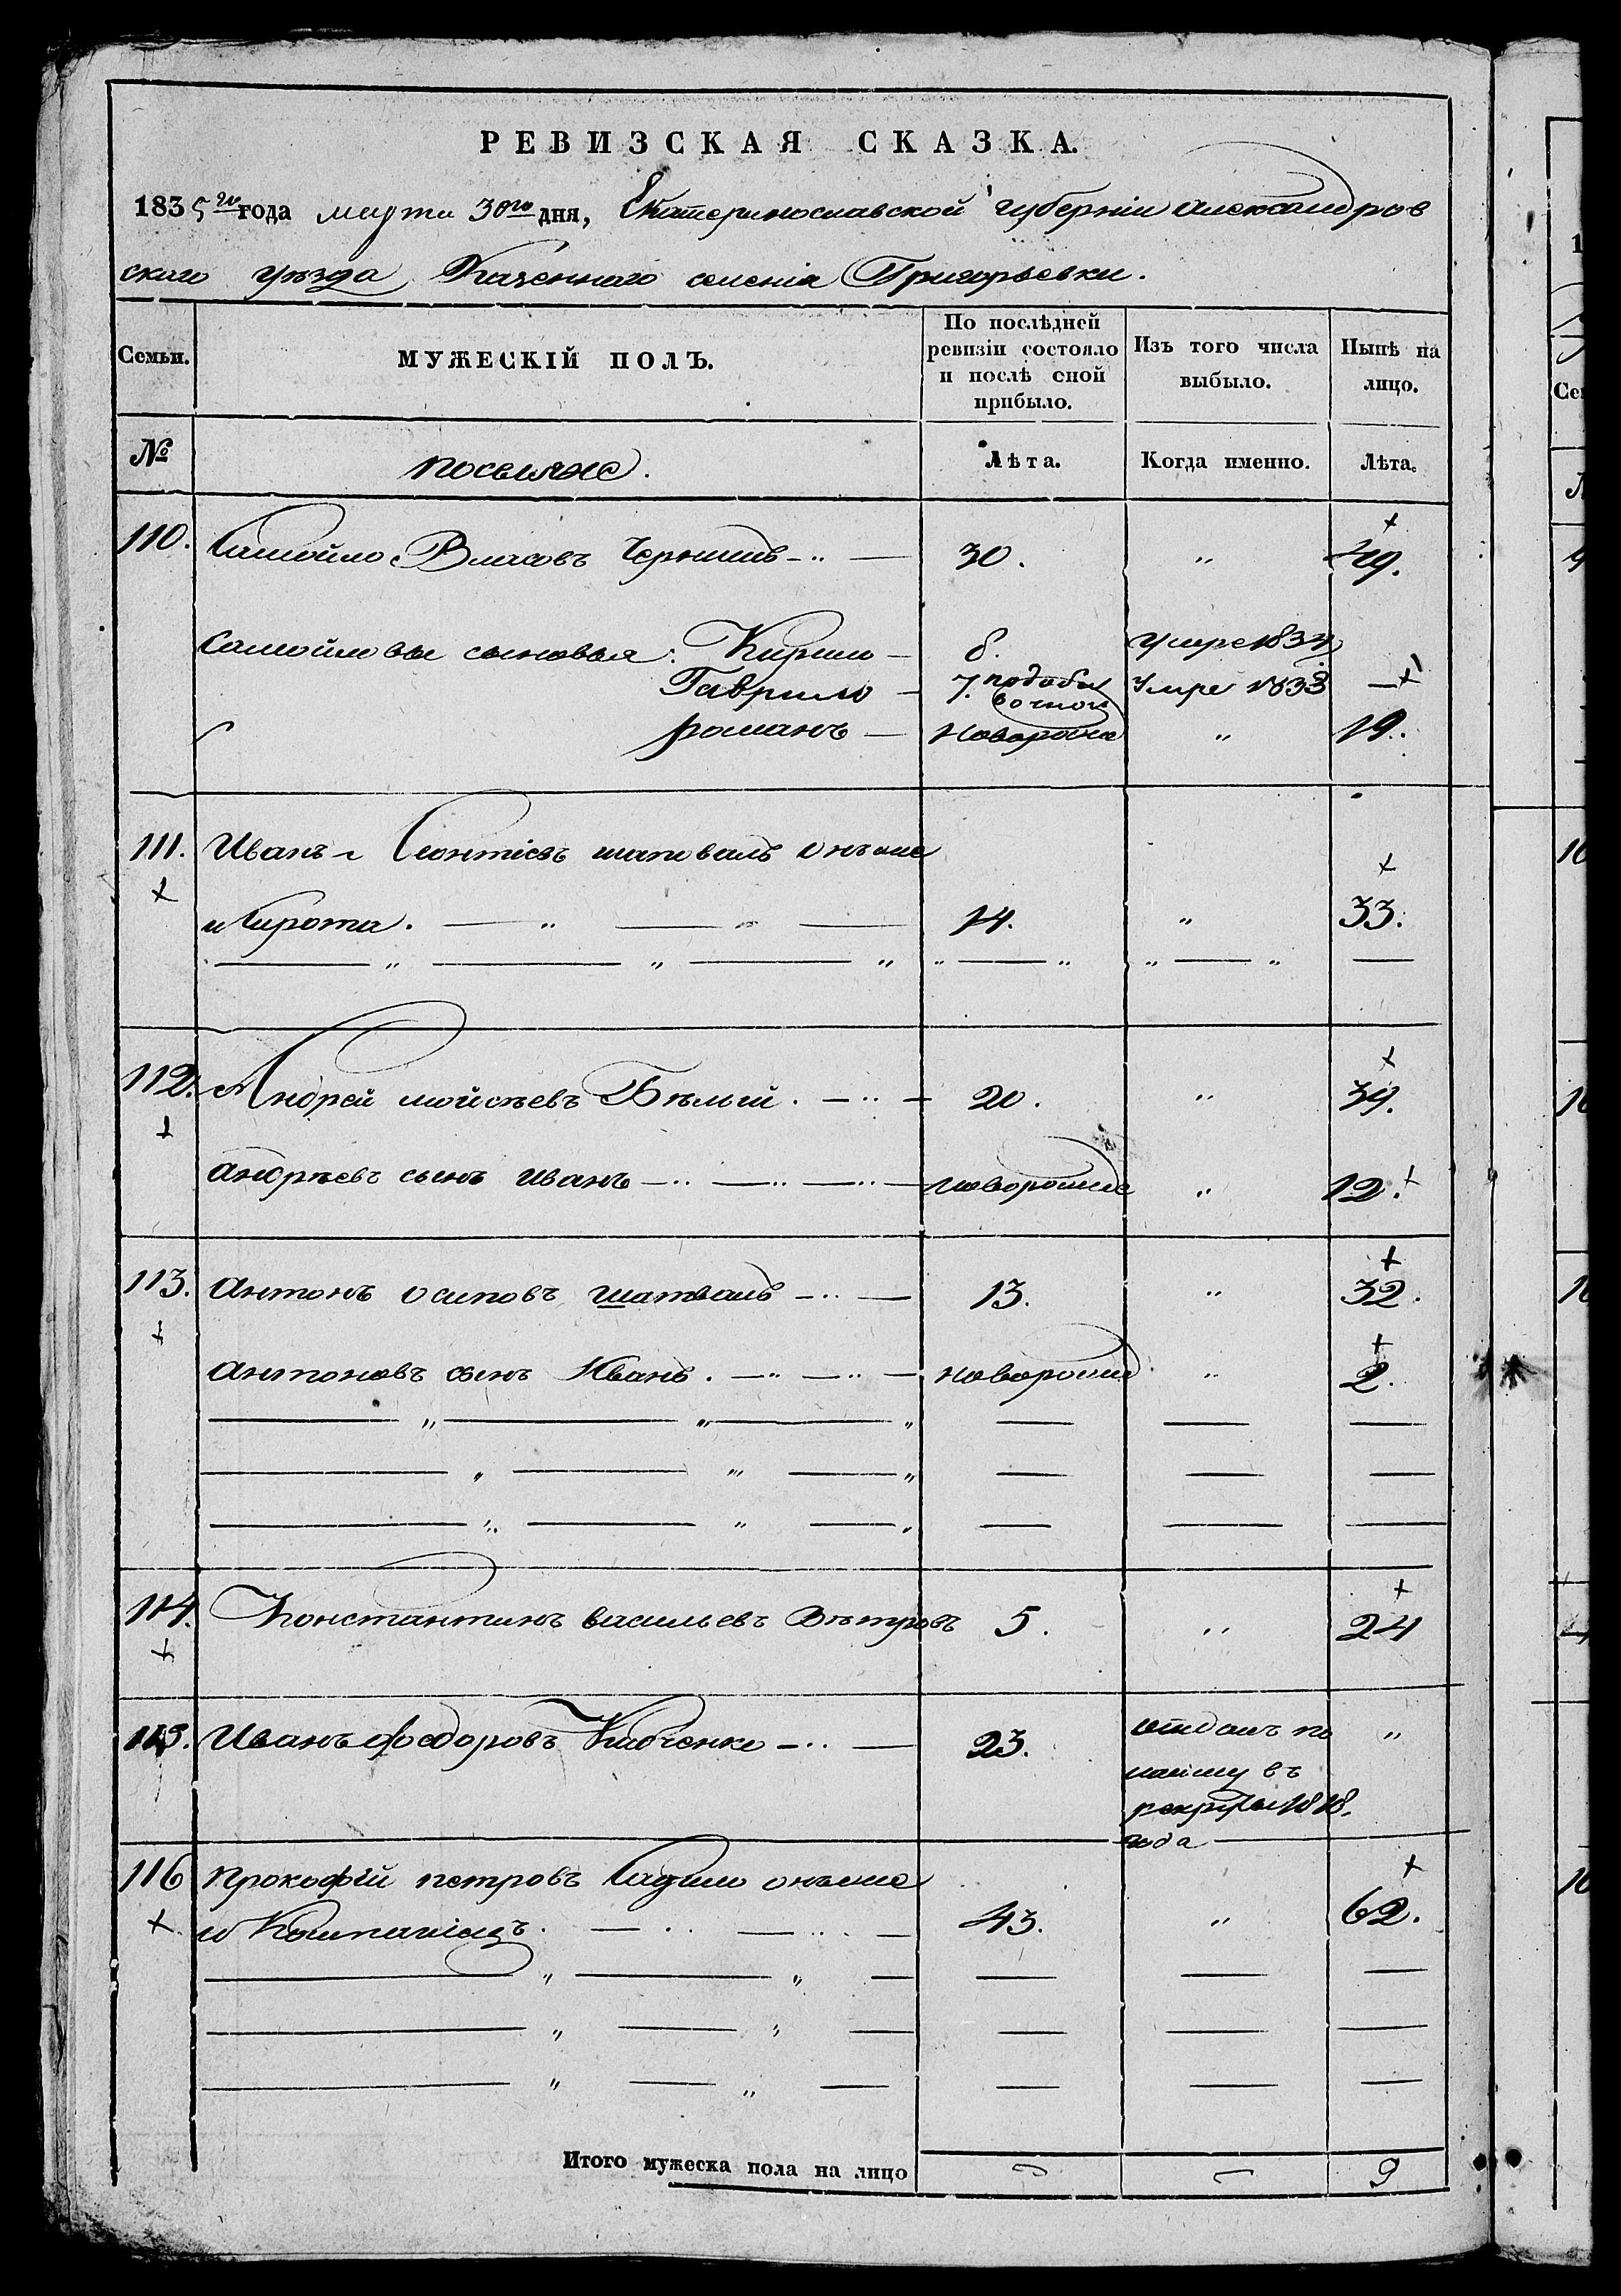 РЕВИЗСКАЯ СКАЗКА.
1835го года марта 30го дня, Екатеринославской губерніи Александров
скаго уѣзда Казеннаго селенія Григорьевки.
Семьи. МУЖЕСКІЙ ПОЛЪ. По послѣдней ревизіи состояло и послѣ оной прибыло. Изъ того числа выбыло. Нынѣ на лицо.
№ поселяне. Лѣта. Когда именно. Лѣта.
110. Самойло Власовъ 30. " 49.
Самойловы сыновья: Кирило — 8. Умре 1834
Гаврило — 7. Умре 1833 —
романъ — новорожде " 19.
111. Иванъ Леонтіевъ шаповалъ онъже
и Сирота. — " — 14. " 33.
112. Андрей мойсѣевъ Бѣлый. — 20. " 39.
андрѣевъ сынъ иванъ — новорожде " 12.
113. антонъ осиповъ шаповалъ — 13. " 32.
антоновъ сынъ Иванъ. — новорожде " 2.
114. Константинъ васильевъ Вѣтровъ 5. " 24
115. Иванъ Федоровъ — 23. отданъ по "
найму въ
рекруты 1818.
года
116 прокофій петровъ онъже
и Компаніецъ. — 43. " 62.
Итого мужеска пола на лицо 9